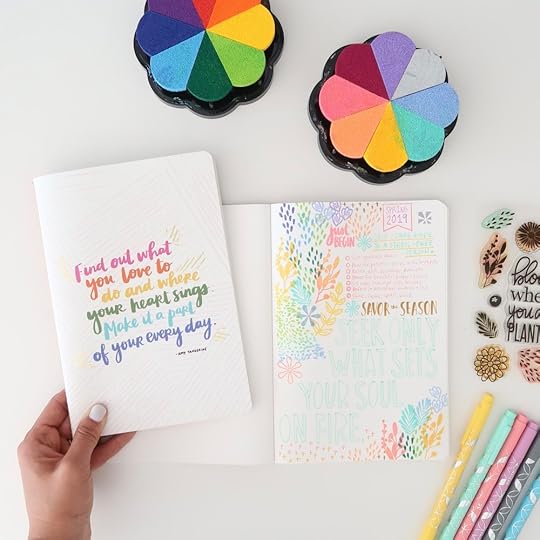 Find out what
you love to
do and where
your heart sings.
Make it a part
of your every day.
- AMY TANGERINE
SPRING
2019
just
BEGIN
SAVOR the SEASON
SEEK ONLY
WHAT SETS
YOUR SOUL
ON FIRE.
whe
you a
PLANT